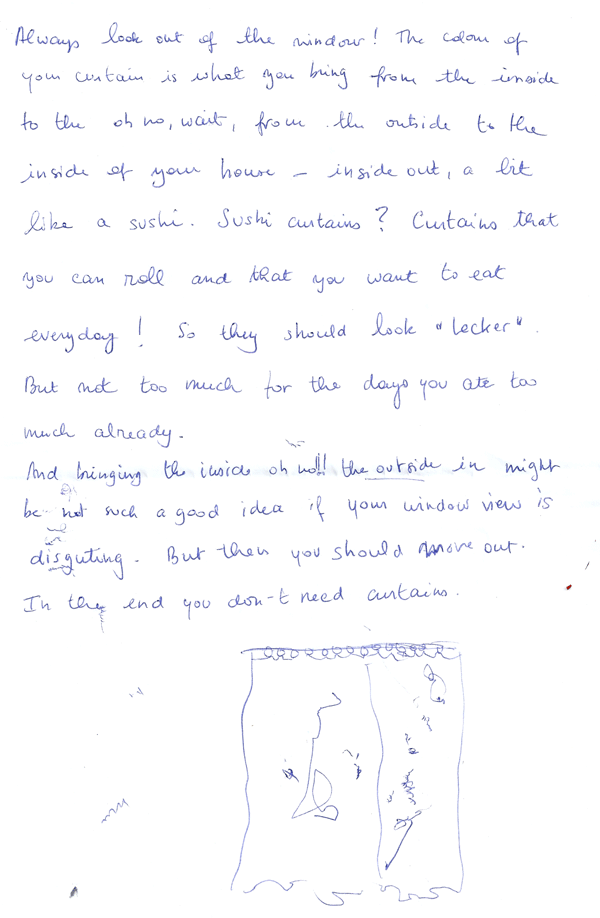 Always look out of the window! The colour of
your curtain is what you bring from the inside
to the oh no, wait, from the outside to the
inside of your house – inside out, a bit
like a sushi. Sushi curtains? Curtains that
you can roll and that you want to eat
everyday! So they should look "lecker".
But not too much for the days you ate too
much already.
And bringing the inside oh no!! the outside in might
be not such a good idea if your window view is
disguting. But then you should move out.
In the end you don-t need curtains.